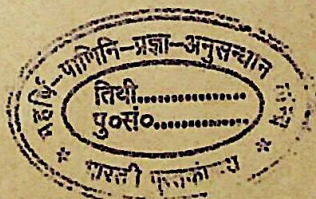 महर्षि-पाणिनि-प्रज्ञा-अनुसन्धान
तिथी....................
पु०सं०..................
* भारती *